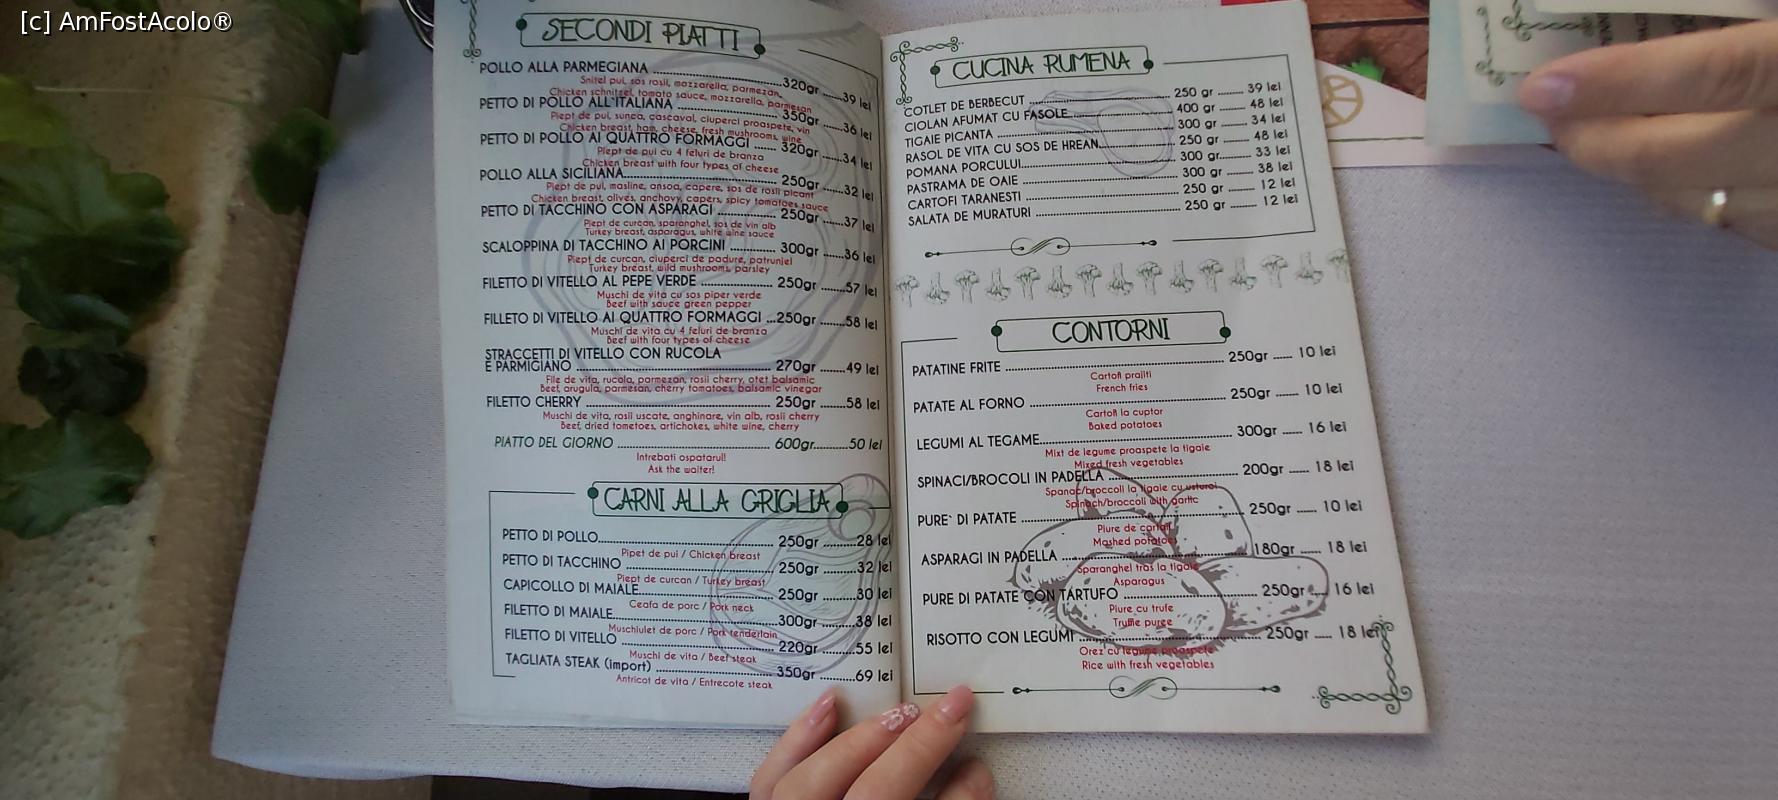 [c] AmFostAcolo®
SECONDI PIATTI
POLLO ALLA PARMEGIANA ........ 320gr ....39 lei
Snitel pui, sos rosii, mozzarella, parmezan,
Chicken schnitzel, tomato sauce, mozzarella, parmesan
PETTO DI POLLO ALL'ITALIANA ........ 350gr ....36 lei
Piept de pui, sunca, cascaval, ciuperci proaspete, vin
Chicken breast, ham, cheese, fresh mushrooms, wine
PETTO DI POLLO AI QUATTRO FORMAGGI ...... 320gr ....34 lei
Piept de pui cu 4 feluri de branza
Chicken breast with four types of cheese
POLLO ALLA SICILIANA........ 250gr ....32 lei
Piept de pui, masline, ansoa, capere, sos de rosii picant
Chicken breast, olives, anchovy, capers, spicy tomatoes sauce
PETTO DI TACCHINO CON ASPARAGI ........ 250gr ....37 lei
Piept de curcan, sparanghel, sos de vin alb
Turkey breast, asparagus, white wine sauce
SCALOPPINA DI TACCHINO AI PORCINI ........ 300gr ....36 lei
Piept de curcan, ciuperci de padure, patrunjel
Turkey breast, wild mushrooms, parsley
FILETTO DI VITELLO AL PEPE VERDE ........ 250gr ....57 lei
Muschi de vita cu sos piper verde
Beef with sauce green pepper
FILLETO DI VITELLO AI QUATTRO FORMAGGI ...250gr ....58 lei
Muschi de vita cu 4 feluri de branza
Beef with four types of cheese
STRACCETTI DI VITELLO CON RUCOLA
E PARMIGIANO ........ 270gr ....49 lei
File de vita, rucola, parmezan, rosii cherry, otet balsamic
Beef, arugula, parmesan, cherry tomatoes, balsamic vinegar
FILETTO CHERRY ........ 250gr ....58 lei
Muschi de vita, rosii uscate, anghinare, vin alb, rosii cherry
Beef, dried tometoes, artichokes, white wine, cherry
PIATTO DEL GIORNO ........ 600gr........50 lei
Intrebati ospatarul!
Ask the waiter!
CARNI ALLA GRIGLIA
PETTO DI POLLO........ 250gr ........28 lei
Pipet de pui / Chicken breast
PETTO DI TACCHINO ........ 250gr ........32 lei
Piept de curcan / Turkey breast
CAPICOLLO DI MAIALE........ 250gr ........30 lei
Ceafa de porc / Pork neck
FILETTO DI MAIALE........300gr ........38 lei
Muschiulet de porc / Pork tenderlain
FILETTO DI VITELLO ........ 220gr ........55 lei
Muschi de vita / Beef steak
TAGLIATA STEAK (import) ........ 350gr ........69 lei
Antricot de vita / Entrecote steak
CUCINA RUMENA
COTLET DE BERBECUT ........ 250 gr ........ 39 lei
CIOLAN AFUMAT CU FASOLE........ 400 gr ........ 48 lei
TIGAIE PICANTA ........ 300 gr ........ 34 lei
RASOL DE VITA CU SOS DE HREAN........ 250 gr ........ 48 lei
POMANA PORCULUI........ 300 gr........ 33 lei
PASTRAMA DE OAIE ........ 300 gr ........ 38 lei
CARTOFI TARANESTI ........ 250 gr ........ 12 lei
SALATA DE MURATURI ........ 250 gr ........ 12 lei
CONTORNI
PATATINE FRITE ........ 250gr ...... 10 lei
Cartofi prajiti
French fries
PATATE AL FORNO ........ 250gr ...... 10 lei
Cartofi la cuptor
Baked potatoes
LEGUMI AL TEGAME........ 300gr ...... 16 lei
Mixt de legume proaspete la tigaie
Mixed fresh vegetables
SPINACI/BROCOLI IN PADELLA ........ 200gr ...... 18 lei
Spanac/broccoli la tigaie cu usturoi
Spinach/broccoli with garlic
PURE` DI PATATE ........ 250gr ...... 10 lei
Piure de cartofi
Mashed potatoes
ASPARAGI IN PADELLA ........ 180gr ...... 18 lei
Sparanghel tras la tigaie
Asparagus
PURE DI PATATE CON TARTUFO ........ 250gr ...... 16 lei
Piure cu trufe
Truffle puree
RISOTTO CON LEGUMI ........ 250gr ...... 18 lei
Orez cu legume proaspete
Rice with fresh vegetables